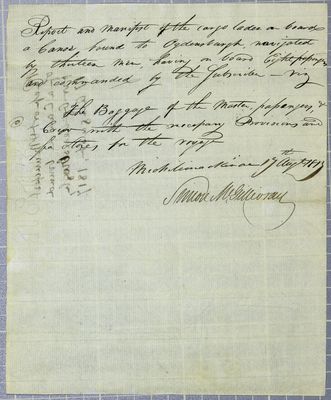 Report and manifest of the cargo laden on board
a Canoe bound to Ogdensburgh navigated
by thirteen men having on board Eight passengers
and commanded by the Subscriber — viz
The Baggage of the Master passengers &
Crew with the necessary Provisions and
Sea Stores for the voyage
Michilimackinac 17th Augt
Simon McGillivray